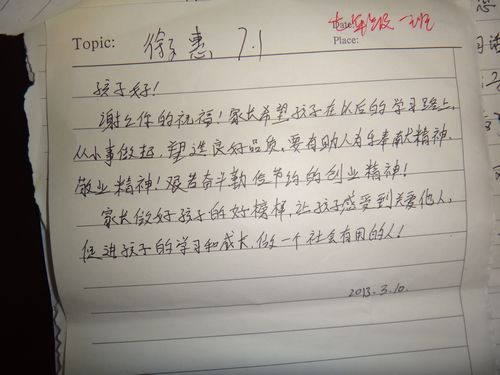 Topic: 徐惠 7.1 Date: 七年级一班
Place:
孩子好!
谢谢你的祝福!家长希望孩子在以后的学习路上,
从小事做起,塑造良好品质,要有助人为乐奉献精神、
敬业精神!艰苦奋斗勤俭节约的创业精神!
家长做好孩子的好榜样,让孩子感受到关爱他人,
促进孩子的学习和成长,做一个社会有用的人!
2013.3.10.